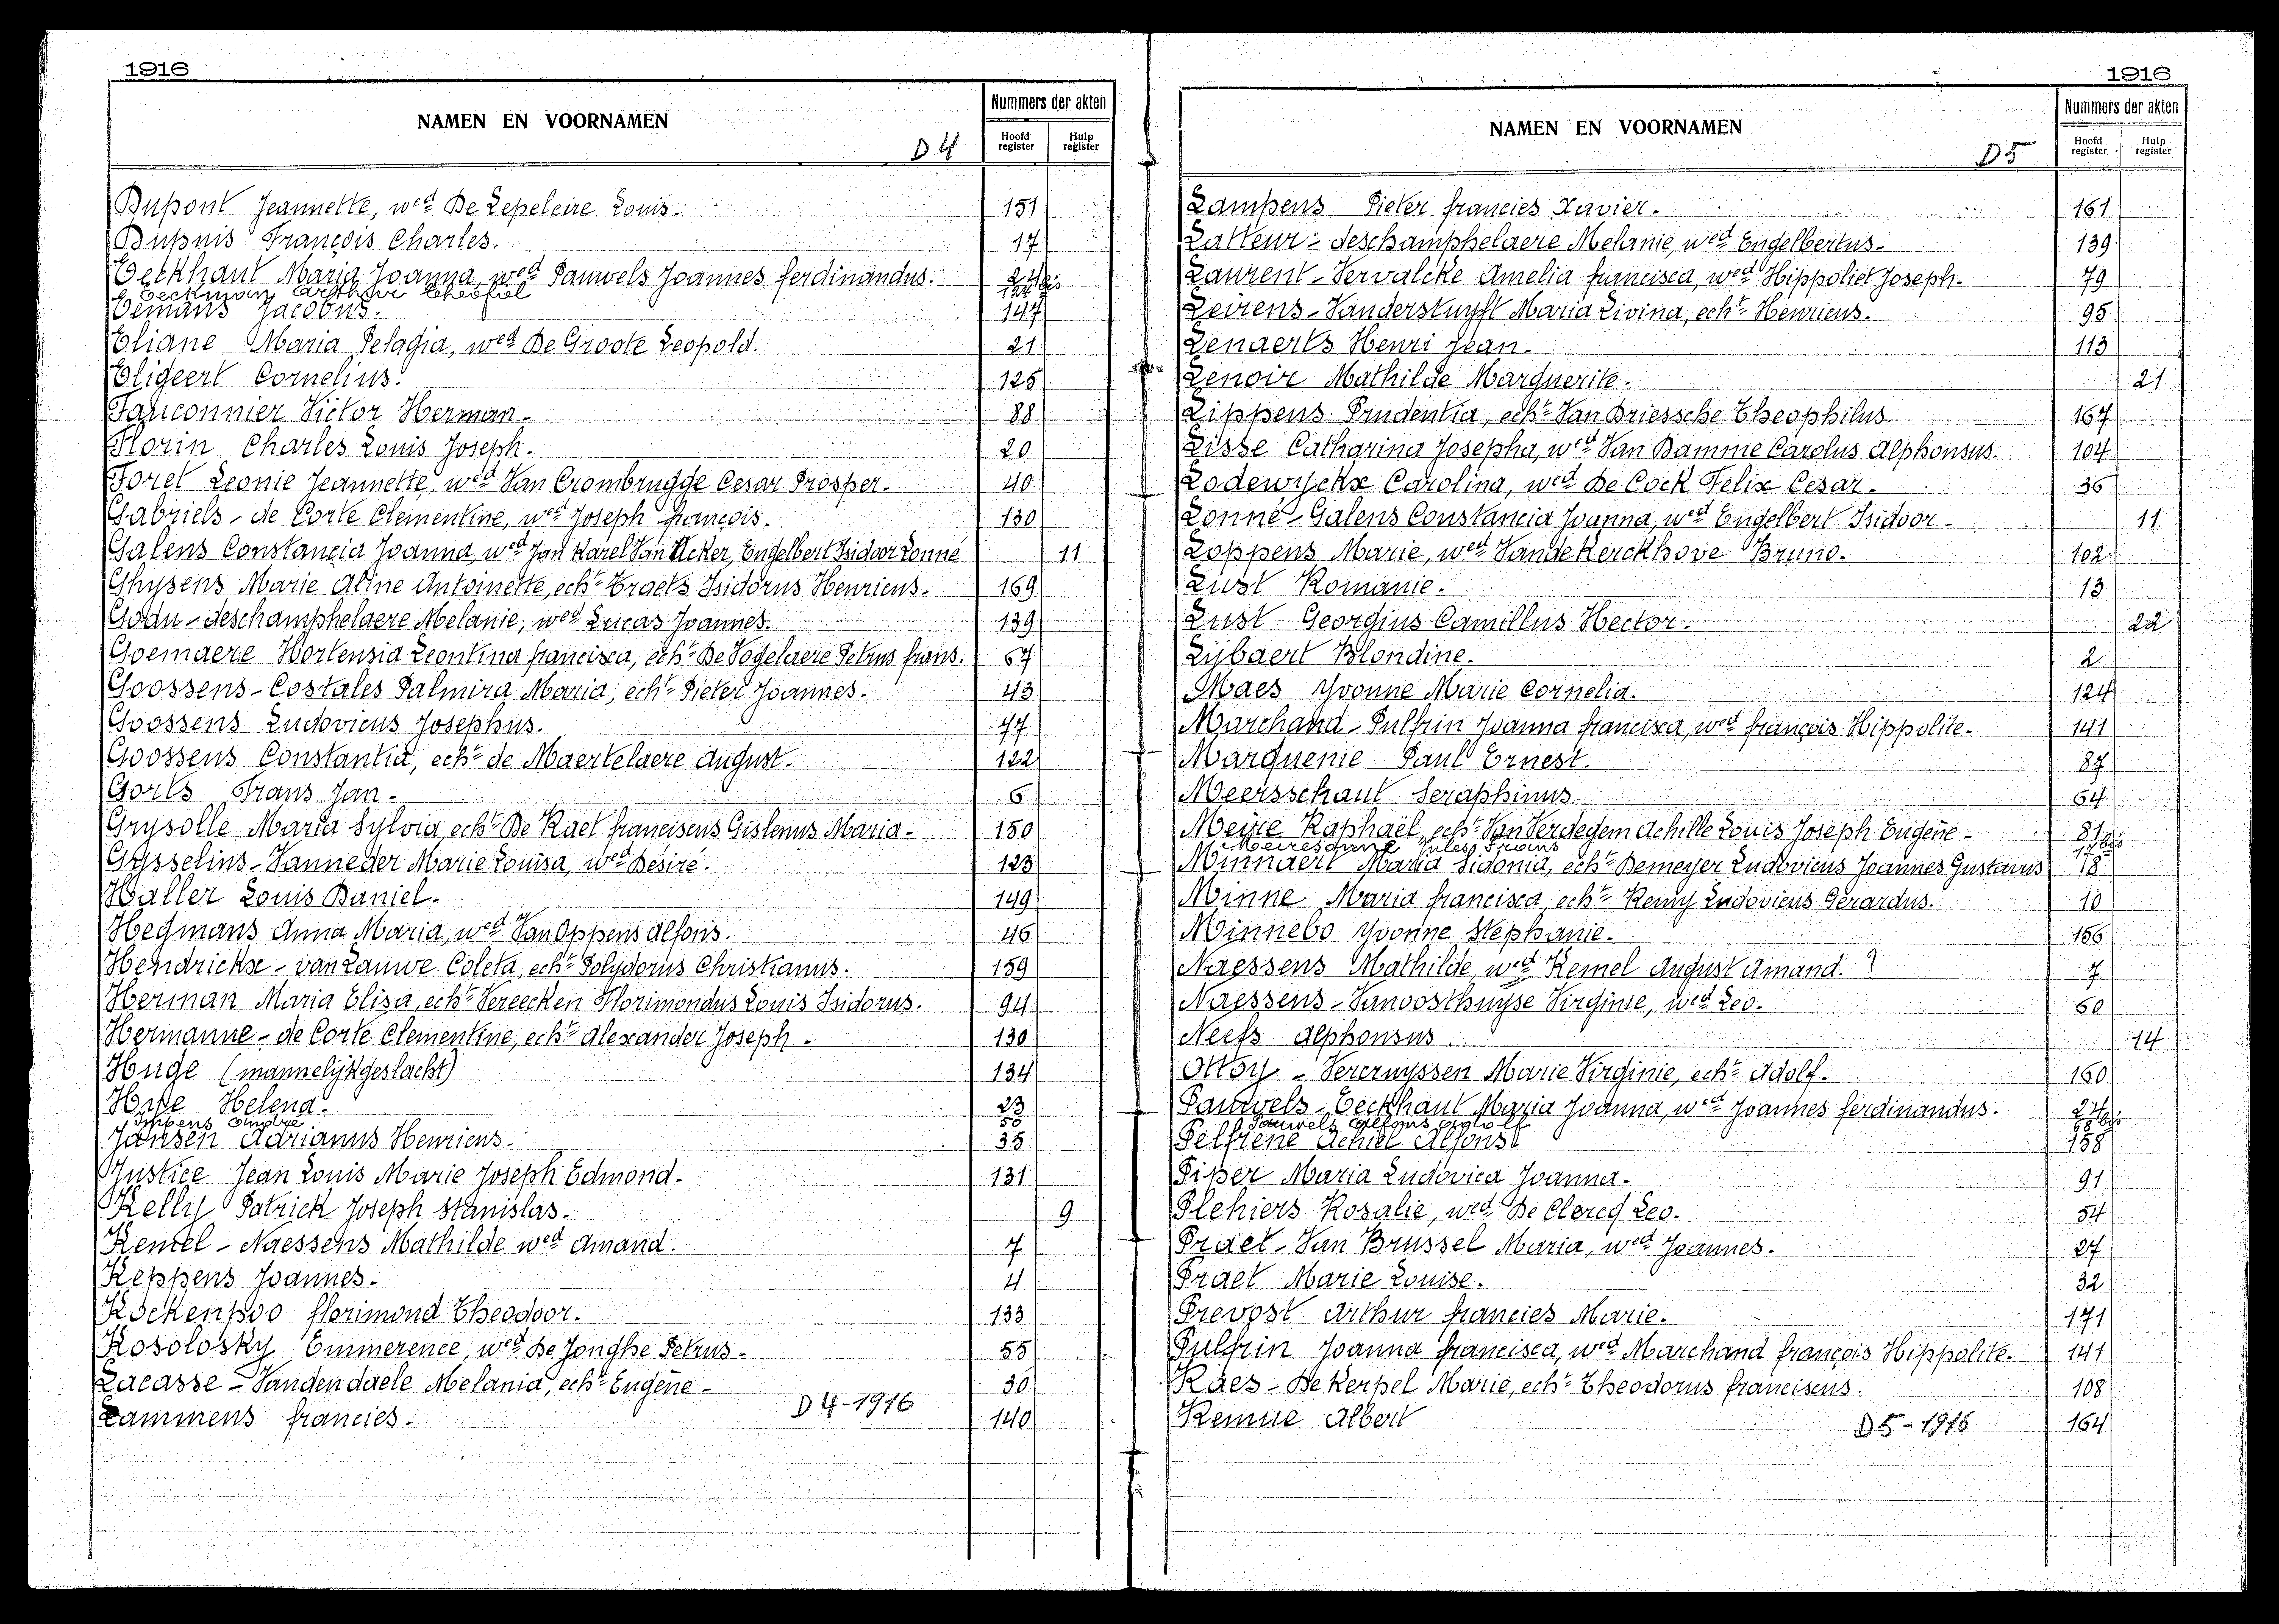 1916
NAMEN EN VOORNAMEN
D4
Nummers der akten
Hoofd register
Hulp register
Dupont Jeannette, wed De Lepeleire Louis. 151
Dupuis François Charles. 17
Eeckhaut Maria Joanna, wed Pauwels Joannes ferdinandus. 24
Eeckman Arthur Theofiel 124bis
Eemans Jacobus. 147
Eliane Maria Pelagia, wed De Groote Leopold. 21
Eligeert Cornelius. 125
Fauconnier Victor Herman. 88
Florin Charles Louis Joseph. 20
Foret Leonie Jeannette, wed Van Crombrugge Cesar Prosper. 40
Gabriels - de Corte Clementine, wed Joseph françois. 130
Galens Constancia Joanna, wed Jan Karel Van Acker, Engelbert Isidoor Lonné 11
Ghysens Marie Aline Antoinette, echt Eraets Isidorus Henricus. 169
Godu - deschamphelaere Melanie, wed Lucas Joannes. 139
Goemaere Hortensia Leontina francisca, echt De Vogelaere Petrus frans. 67
Goossens - Costales Palmira Maria, echt Pieter Joannes. 43
Goossens Ludovicus Josephus. 77
Goossens Constantia, echt de Maertelaere August. 122
Gorts Frans Jan. 6
Grysolle Maria Sylvia, echt De Raet franciscus Gislenus Maria. 150
Gysselins - Vanneder Marie Louisa, wed Désiré. 123
Haller Louis Daniel. 149
Hegmans Anna Maria, wed Van Oppens Alfons. 46
Hendrickx - van Lauwe Coleta, echt Polydorus Christianus. 159
Herman Maria Elisa, echt Vereecken Florimondus Louis Isidorus. 94
Hermanne - de Corte Clementine, echt Alexander Joseph. 130
Huge (mannelijk geslacht) 134
Hype Helena. 23
Impens Omdre 50
Jansen Adrianus Henricus. 35
Justice Jean Louis Marie Joseph Edmond. 131
Kelly Patrick Joseph Stanislas. 9
Kemel - Naessens Mathilde wed Amand. 7
Keppens Joannes. 4
Kockenpoo florimond Theodoor. 133
Kosolosky Emmerence, wed De Jonghe Petrus. 55
Lacasse - Vandendaele Melania, echt Eugène. 30
Lammens francies. 140
D4-1916
1916
NAMEN EN VOORNAMEN
D5
Nummers der akten
Hoofd register
Hulp register
Lampens Pieter francies Xavier. 161
Latteur - deschamphelaere Melanie, wed Engelbertus. 139
Laurent - Vervalcke Amelia francisca, wed Hippoliet Joseph. 79
Leirens - Vanderstuyft Maria Livina, echt Henricus. 95
Lenaerts Henri Jean. 113
Lenoir Mathilde Marguerite. 21
Lippens Prudentia, echt Van Driessche Theophilus. 167
Lisse Catharina Josepha, wed Van Damme Carolus Alphonsus. 104
Lodewyckx Carolina, wed De Cock Felix Cesar. 36
Lonné - Galens Constancia Joanna, wed Engelbert Isidoor. 11
Loppens Marie, wed Vandekerckhove Bruno. 102
Lust Romanie. 13
Lust Georgius Camillus Hector. 22
Lybaert Blondine. 2
Maes Yvonne Marie Cornelia. 124
Marchand - Pulfrin Joanna francisca, wed françois Hippolite. 141
Marquenie Paul Ernest. 87
Meersschaut Seraphinus 64
Meire Raphaël, echt Van Verdegem Achille Louis Joseph Eugène. 81
Meiresonne Jules Frans 17bis
Minnaert Maria Sidonia, echt Demeyer Ludovicus Joannes Gustavus 18
Minne Maria francisca, echt Remy Ludovicus Gerardus. 10
Minnebo Yvonne Stephanie. 156
Naessens Mathilde, wed Kemel August Amand. ? 7
Naessens - Vanoosthuyse Virginie, wed Leo. 60
Neefs Alphonsus. 14
Ottoy - Vercruyssen Marie Virginie, echt Adolf. 160
Pauwels - Eeckhaut Maria Joanna, wed Joannes ferdinandus. 24
Pauwels Alfons Adolf 68bis
Pelfrene Achiel Alfonst 158
Pisser Maria Ludovica Joanna. 91
Plehiers Rosalie, wed De Clercq Leo. 54
Praet - Van Brussel Maria, wed Joannes. 27
Praet Marie Louise. 32
Prevost Arthur francies Marie. 171
Pulfrin Joanna francisca, wed Marchand françois Hippolite. 141
Raes - De Kerpel Marie, echt Theodorus franciscus. 108
Remue Albert 164
D5-1916